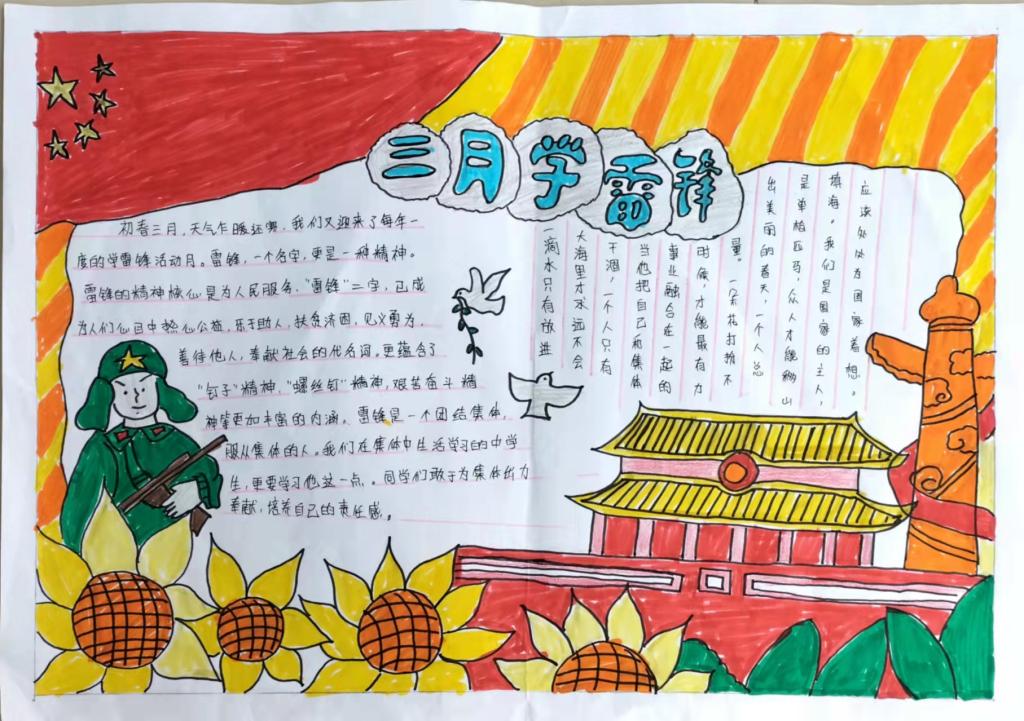 三月学雷锋
初春三月，天气乍暖还寒，我们又迎来了每年一
度的学雷锋活动月。雷锋，一个名字，更是一种精神。
雷锋的精神核心是为人民服务。“雷锋”二字，已成
为人们心目中热心公益，乐于助人，扶贫济困，见义勇为，
善待他人，奉献社会的代名词。更蕴含了
“钉子”精神，“螺丝钉”精神，艰苦奋斗精
神等更加丰富的内涵。雷锋是一个团结集体，
服从集体的人。我们在集体中生活学习的中学
生，更要学习他这一点。同学们敢于为集体出力
奉献，培养自己的责任感。
一滴水只有放进
大海里才永远不会
干涸，一个人只有
当他把自己和集体
事业融合在一起的
时候，才能最有力
量。一朵花打扮不
出美丽的春天，一个人总
是单枪匹马，众人才能移山
填海。我们是国家的主人，
应该处处为国家着想。